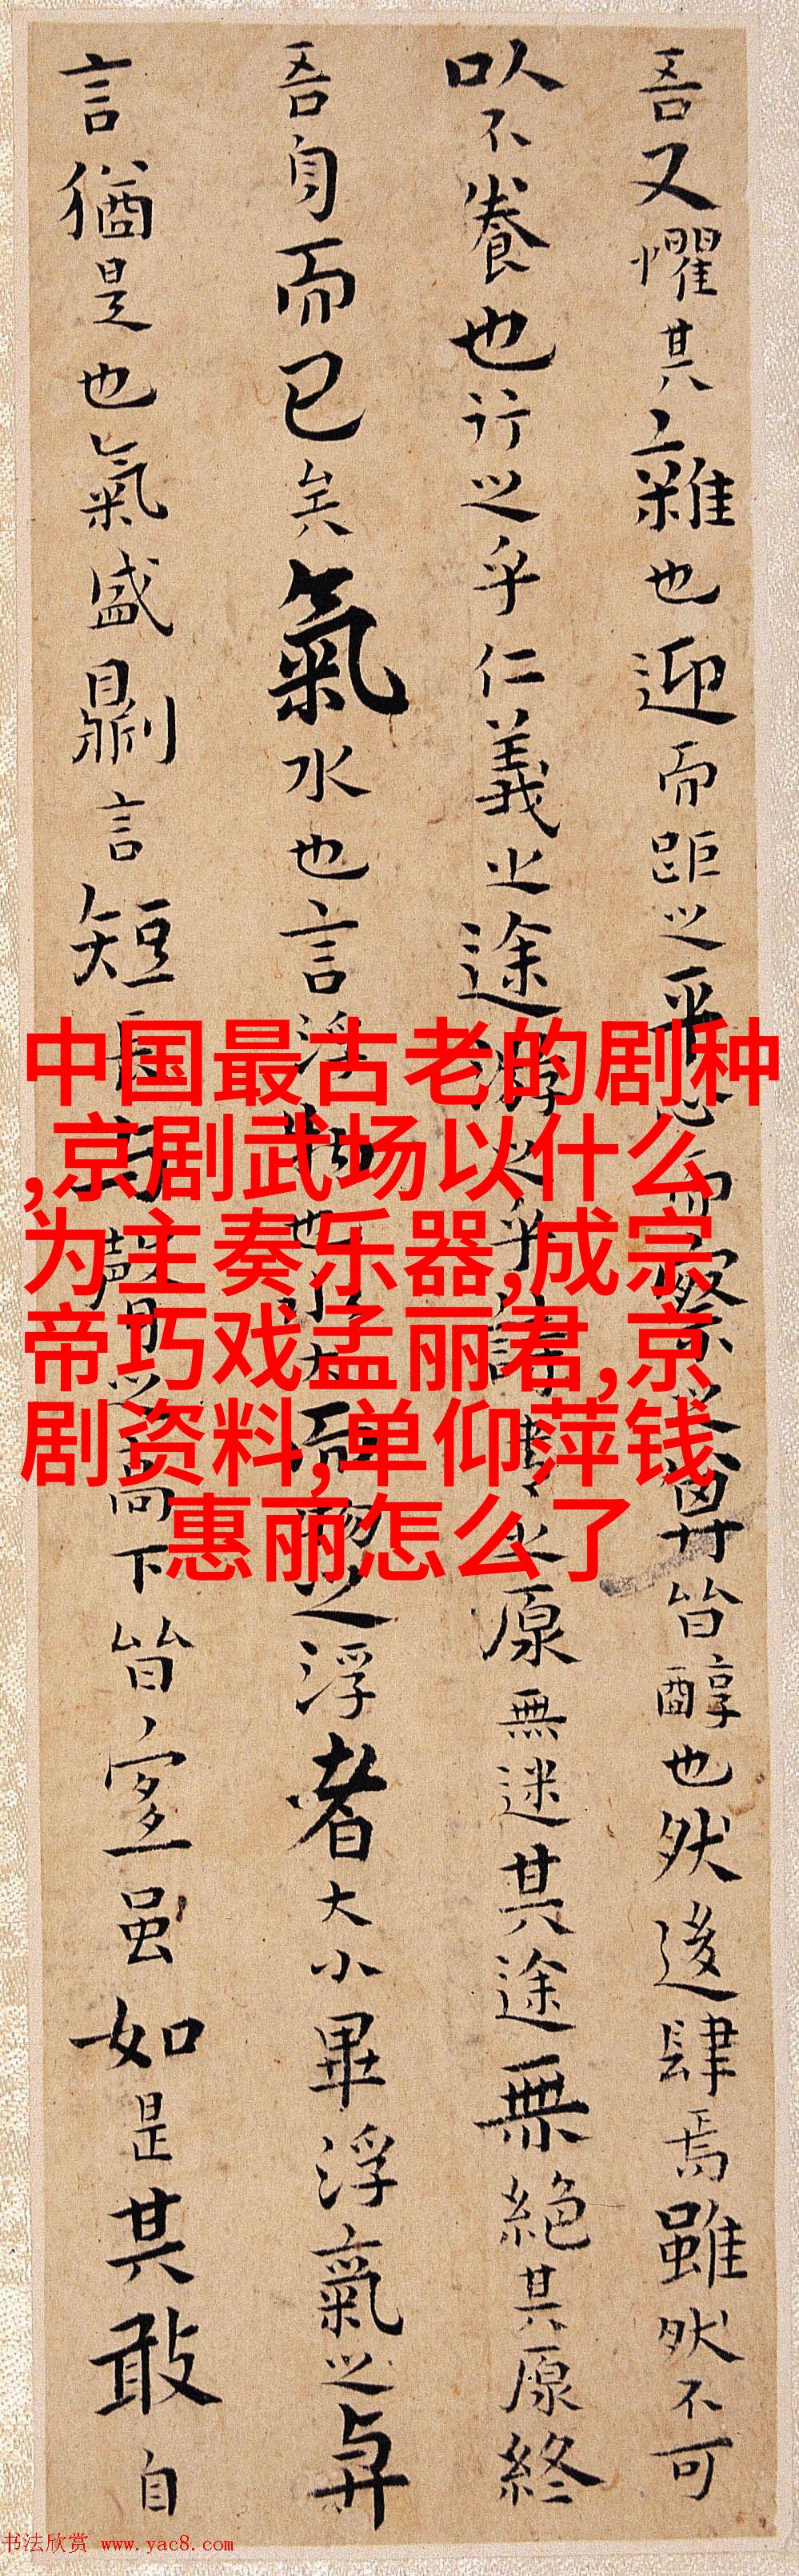 吾又懼其雜也迎而距之平心而察之其皆醇也然後肆焉雖然不可
以不養也行之乎仁義之途游之乎詩書之原無迷其途無絕其原終
吾身而已矣氣水也言浮物也水大而物之浮者大小畢浮氣之與
言猶是也氣盛則言短長與聲之高下皆宜虽如是其敢自
中国最古老的剧种
,京剧武场以什么
为主奏乐器,成宗
帝巧戏孟丽君,京
剧资料,单仰萍钱
惠丽怎么了
书法欣赏 www.yac8.com